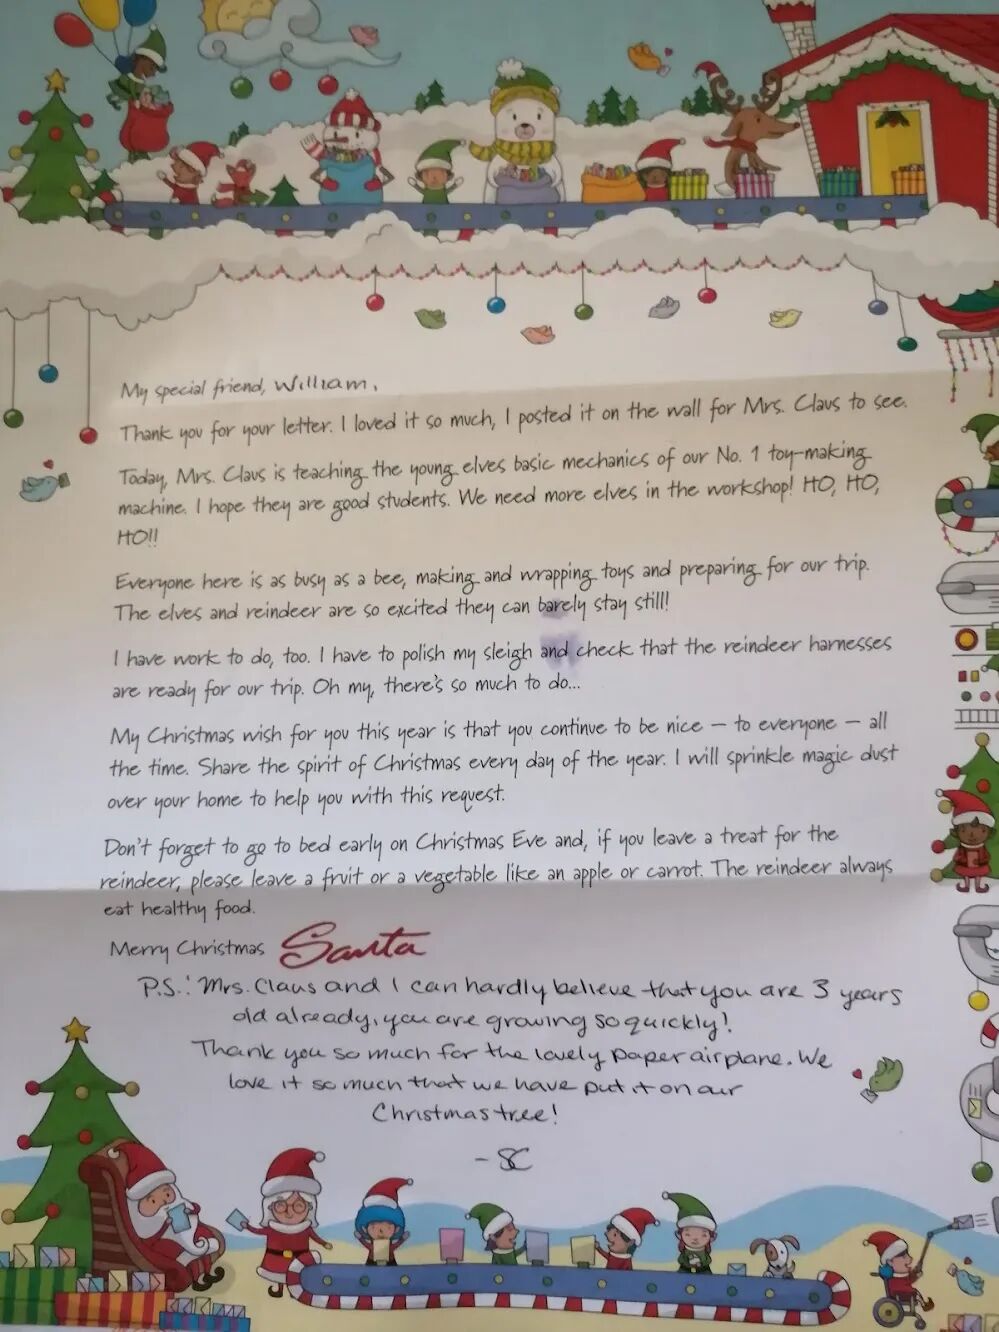 My special friend, William,
Thank you for your letter. I loved it so much, I posted it on the wall for Mrs. Claus to see.
Today, Mrs. Claus is teaching the young elves basic mechanics of our No. 1 toy-making
machine. I hope they are good students. We need more elves in the workshop! HO, HO,
HO!!
Everyone here is as busy as a bee, making and wrapping toys and preparing for our trip.
The elves and reindeer are so excited they can barely stay still!
I have work to do, too. I have to polish my sleigh and check that the reindeer harnesses
are ready for our trip. Oh my, there's so much to do...
My Christmas wish for you this year is that you continue to be nice – to everyone – all
the time. Share the spirit of Christmas every day of the year. I will sprinkle magic dust
over your home to help you with this request.
Don't forget to go to bed early on Christmas Eve and, if you leave a treat for the
reindeer, please leave a fruit or a vegetable like an apple or carrot. The reindeer always
eat healthy food.
Merry Christmas Santa
P.S.: Mrs. Claus and I can hardly believe that you are 3 years
old already, you are growing so quickly!
Thank you so much for the lovely paper airplane. We
love it so much that we have put it on our
Christmas tree!
- SC